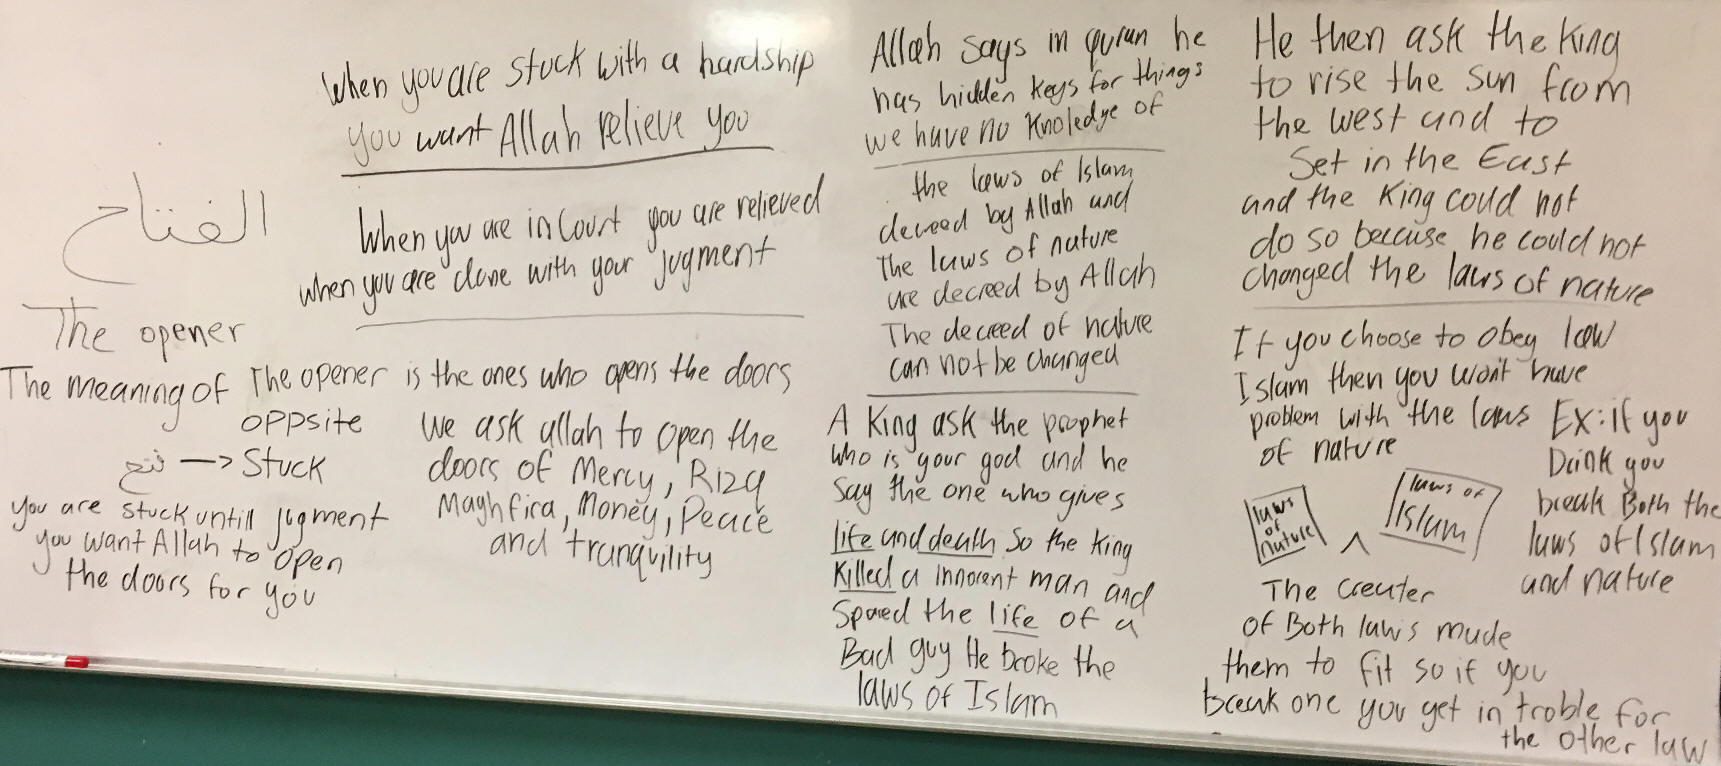 الفتاح
The opener
The meaning of The opener is the ones who opens the doors
oppsite
فتح → Stuck
you are stuck untill jugment
you want Allah to open
the doors for you
When you are stuck with a hardship
you want Allah relieve you
When you are in Court you are relieved
when you are done with your jugment
we ask allah to open the
doors of Mercy, Rizq
Maghfira, Money, Peace
and tranquility
Allah says in quran he
has hidden keys for things
we have no Knoledge of
the laws of Islam
decreed by Allah and
The laws of nature
are decreed by Allah
The decreed of nature
can not be changed
A King ask the prophet
who is your god and he
say the one who gives
life and death so the King
Killed a innocent man and
Spared the life of a
Bad guy He broke the
laws of Islam
He then ask the King
to rise the sun from
the west and to
Set in the East
and the King could not
do so because he could not
changed the laws of nature
If you choose to obey law
Islam then you won't have
problem with the laws
of nature
Ex: if you
Drink you
break Both the
laws of Islam
and nature
laws
of
nature
laws of
Islam
The creater
of Both laws made
them to fit so if you
break one you get in troble for
the other law